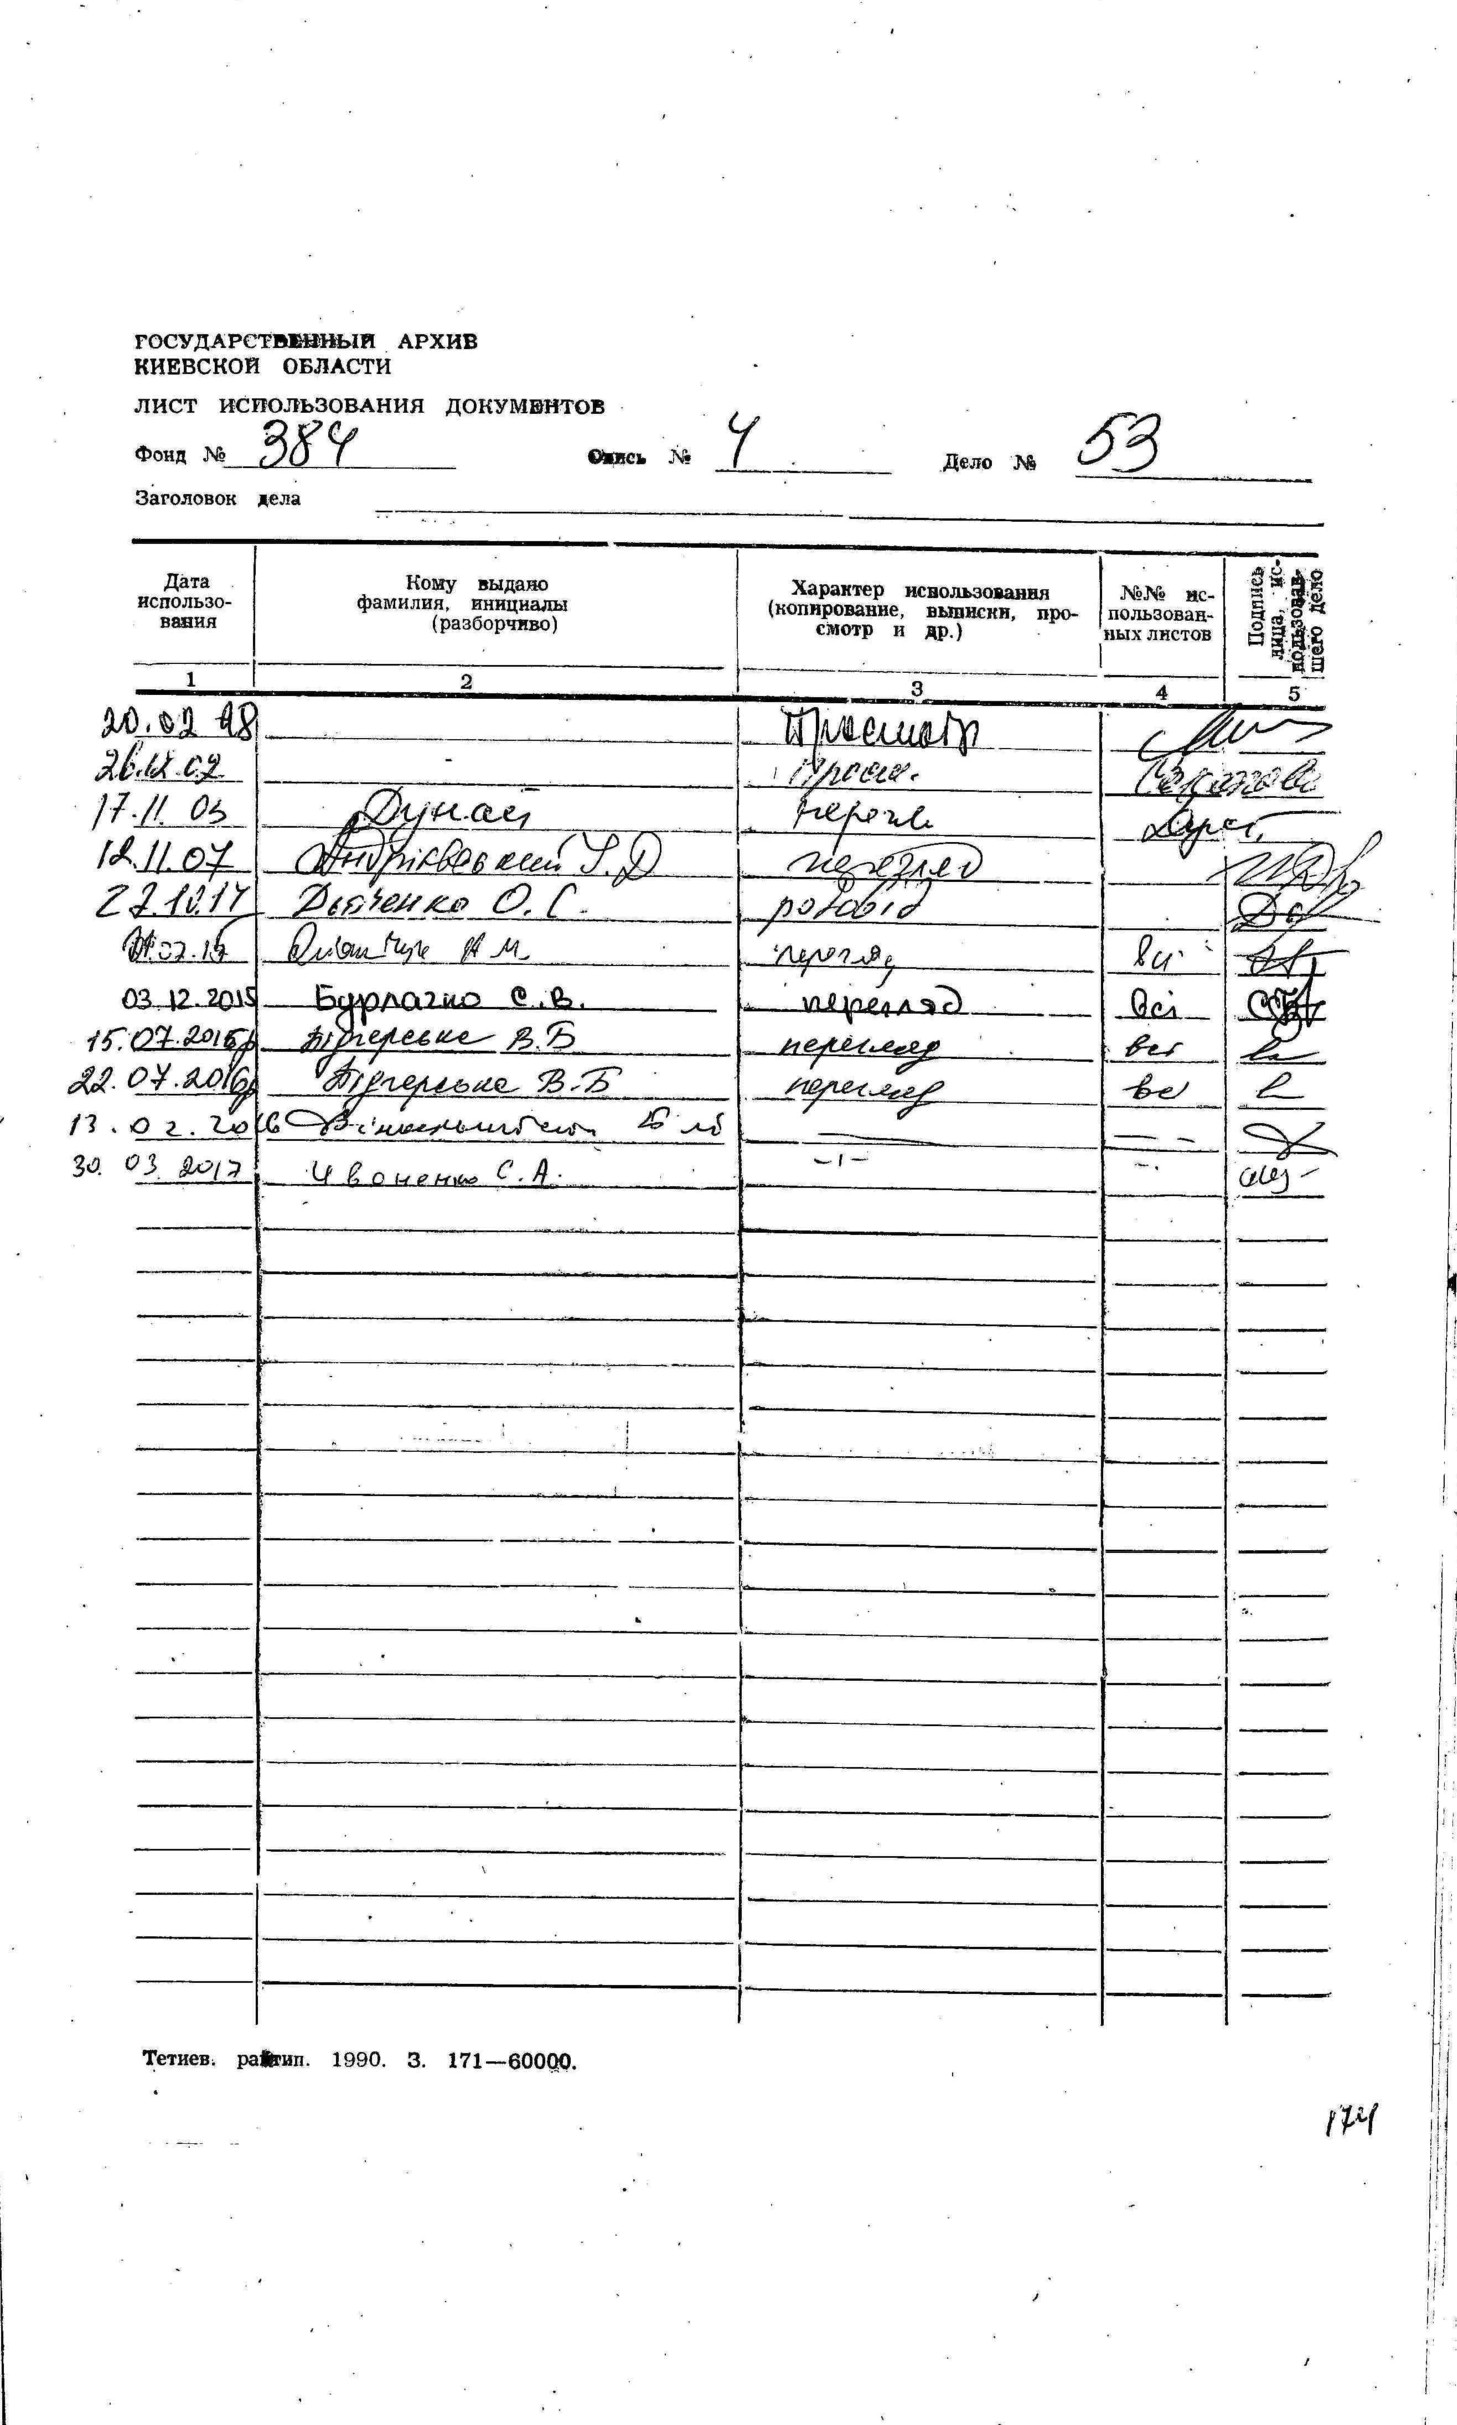 ГОСУДАРСТВЕННЫЙ АРХИВ
КИЕВСКОЙ ОБЛАСТИ
ЛИСТ ИСПОЛЬЗОВАНИЯ ДОКУМЕНТОВ
Фонд № 384 Опись № 4 Дело № 53
Заголовок дела
Дата использо-вания Кому выдано фамилия, инициалы (разборчиво) Характер использования (копирование, выписки, про-смотр и др.) №№ ис-пользован-ных листов Подпись лица, ис-пользовав-шего дело
1 2 3 4 5
20.02 98 Просмотр
02 Просм.
17.11.03 Дунай
12.11.07 Андрієвський перегляд
27.10.14 Дяченко О.С. родовід
07.15 перегляд всі
03.12.2015 Бурлачко С.В. перегляд всі
15.07.2016р Підгерська В.Б перегляд всі
22.07.2016р Підгерська В.Б перегляд
13.02.2016
30.03.2017 С.А. -і-
Тетиев. райтип. 1990. З. 171—60000.
174